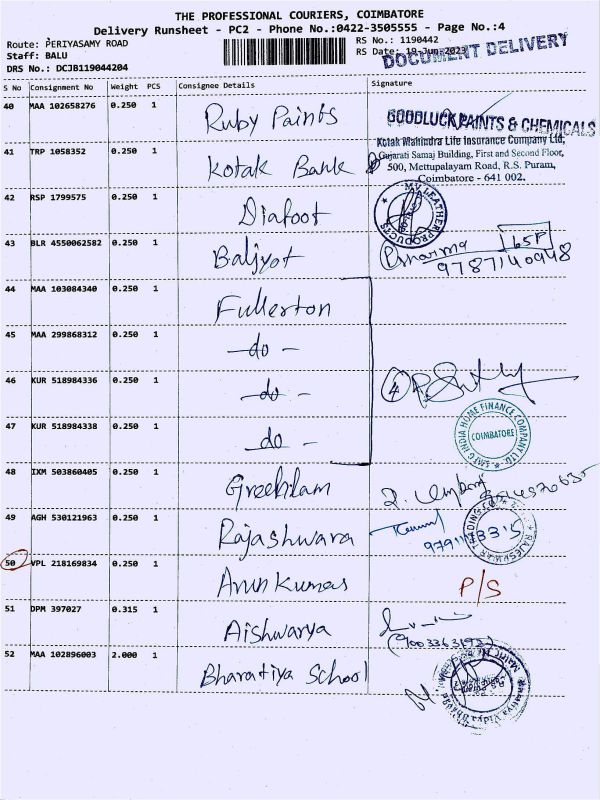 THE PROFESSIONAL COURIERS, COIMBATORE
Delivery Runsheet - PC2 - Phone No.:0422-3505555 - Page No.:4
Route: PERIYASAMY ROAD
RS No.: 1190442
Staff: BALU
RS Date: 19-Jun-2023
DOCUMENT DELIVERY
DRS No.: DCJB119044204
S No Consignment No Weight PCS Consignee Details Signature
40 MAA 102658276 0.250 1 Ruby Paints
GOODLUCK PAINTS & CHEMICALS
41 TRP 1058352 0.250 1 Kotak Bank
Kotak Mahindra Life Insurance Company Ltd,
Gujarati Samaj Building, First and Second Floor,
500, Mettupalayam Road, R.S. Puram,
Coimbatore - 641 002.
42 RSP 1799575 0.250 1 Diafoot
LEATHER PRODUCTS
43 BLR 4550062582 0.250 1 Baljyot
9787140948
44 MAA 103084340 0.250 1 Fullerton
45 MAA 299868312 0.250 1 -do-
46 KUR 518984336 0.250 1 -do-
4
47 KUR 518984338 0.250 1 -do-
INDIA HOME FINANCE COMPANY LTD.
COIMBATORE
48 IXM 503860405 0.250 1
49 AGH 530121963 0.250 1 Rajashwara
RAJESHWARI TRADING
50 VPL 218169834 0.250 1 Arun Kumar
P/S
51 DPM 397027 0.315 1 Aishwarya
52 MAA 102896003 2.000 1 Bharatiya School